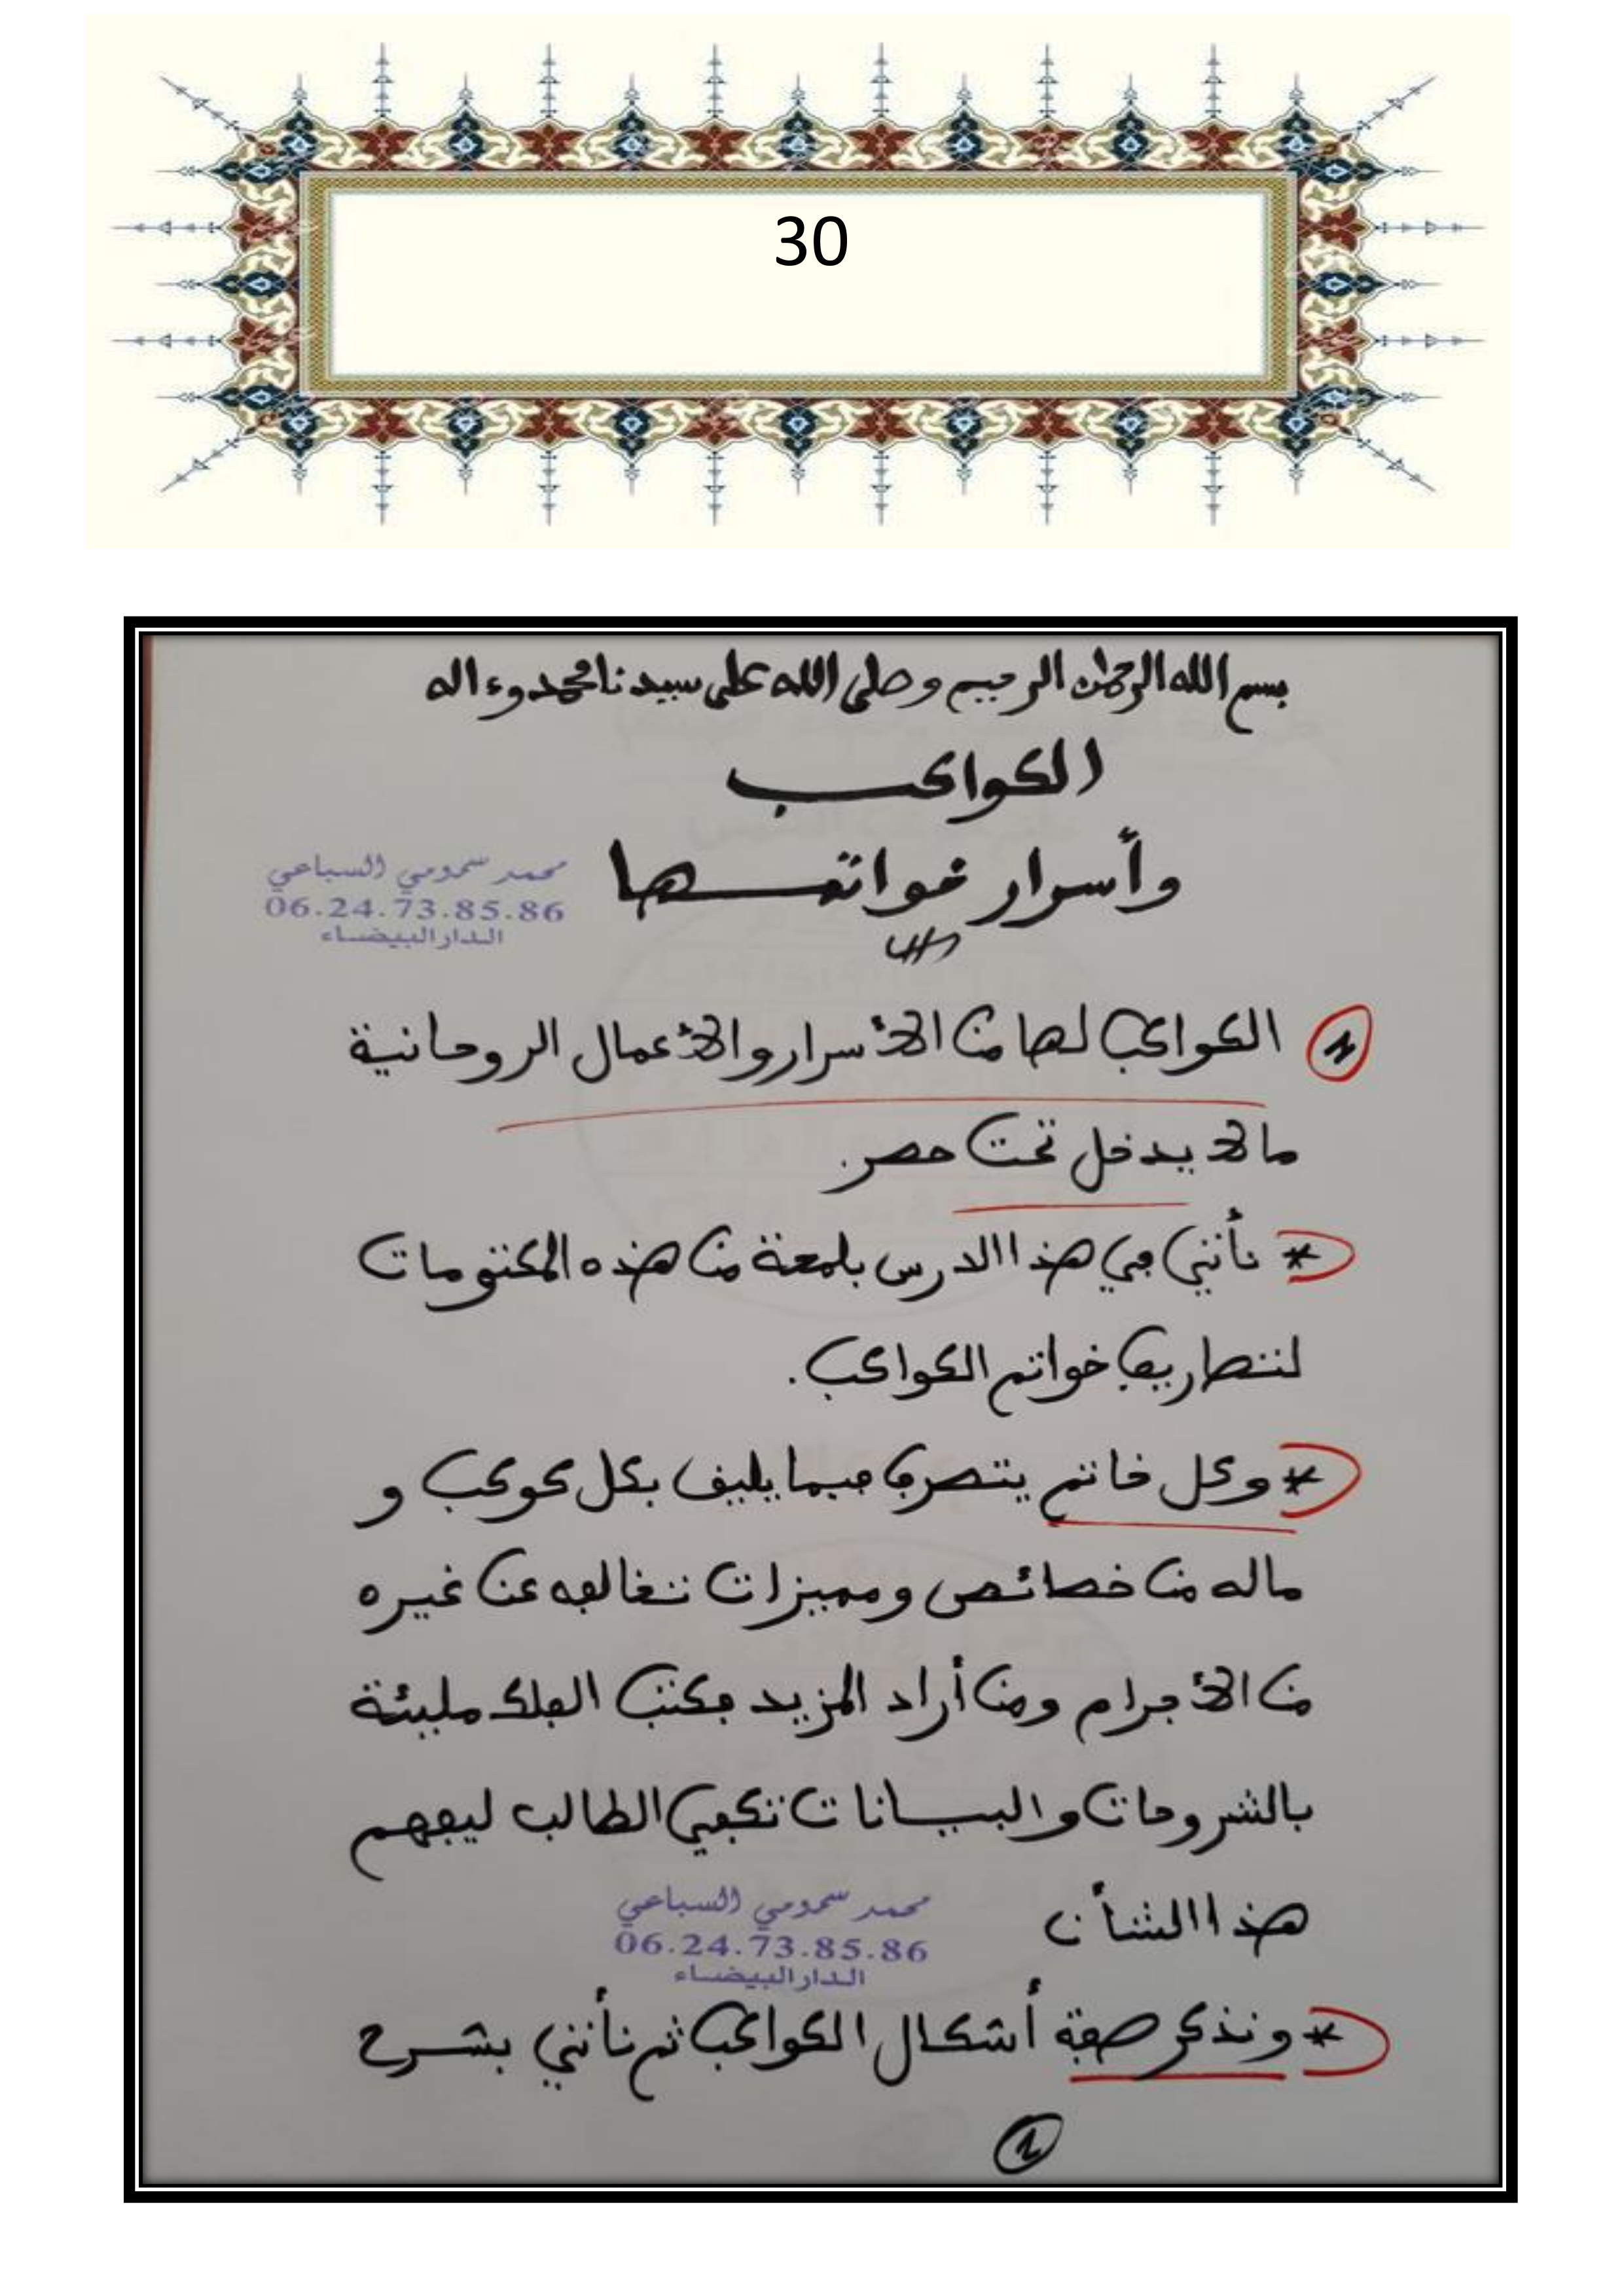 30
بسم الله الرحمن الرحيم وصلى الله على سيدنا محمد وءاله
الكواكب
وأسرار خواتمها
محمد سمومي السباعي
06.24.73.85.86
الدار البيضاء
1 الكواكب لها من الأسرار والأعمال الروحانية
ما لا يدخل تحت حصر.
* نأتي في هذا الدرس بلمعة من هذه المكتومات
خواتم الكواكب.
* وكل خاتم يتصرف فيما يليق بكل كوكب و
ماله من خصائص ومميزات تخالفه عن غيره
من الأجرام ومن أراد المزيد فكتب الفلك مليئة
بالشروحات والبيانات تكفي الطالب ليفهم
هذا الشأن
محمد سمومي السباعي
06.24.73.85.86
الدار البيضاء
* ونذكر صفة أشكال الكواكب ثم نأتي بشرح
1